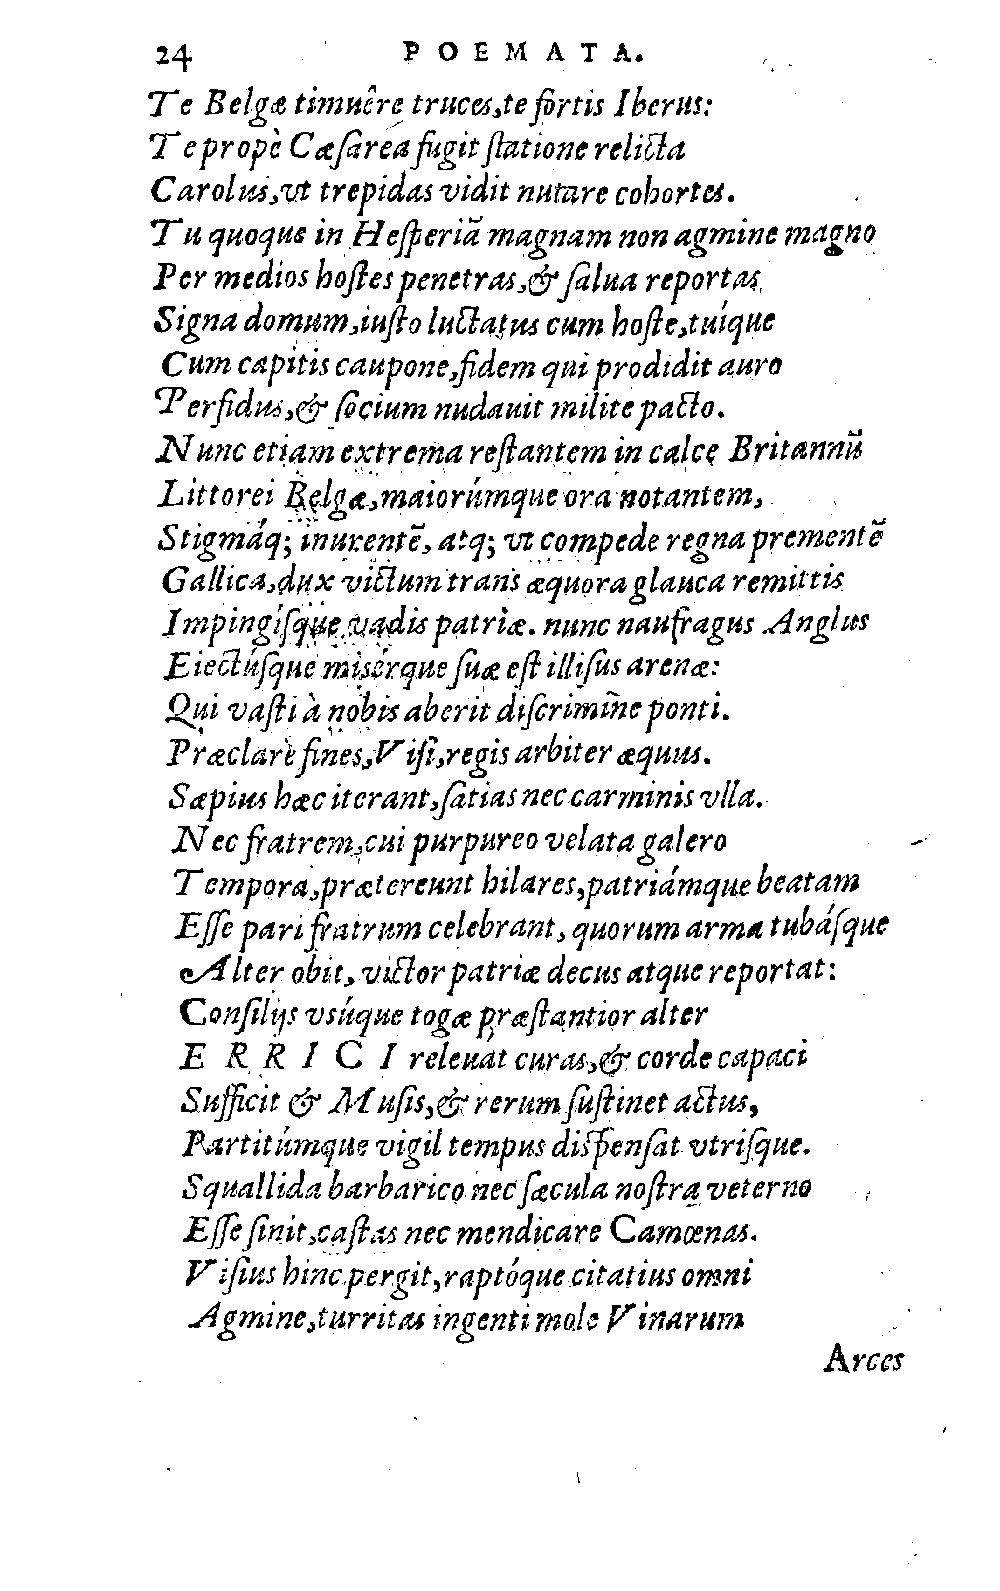 24 POEMATA.
Te Belgæ timuêre truces, te fortis Iberus:
Te propè Cæſarea fugit ſtatione relicta
Carolus, vt trepidas vidit nutare cohortes.
Tu quoque in Heſperiā magnam non agmine magno
Per medios hoſtes penetras, & ſalua reportas
Signa domum, iuſto luctatus cum hoſte, tuíque
Cum capitis caupone, fidem qui prodidit auro
Perfidus, & ſocium nudauit milite pacto.
Nunc etiam extrema reſtantem in calce Britannū
Littorei Belgæ, maiorúmque ora notantem,
Stigmáq; inurentē, atq; vt compede regna prementē
Gallica, dux victum trans æquora glauca remittis
Impingíſque vadis patriæ. nunc naufragus Anglus
Eiectúſque miſérque ſuæ eſt illiſus arenæ:
Qui vaſti à nobis aberit diſcrimine ponti.
Præclarè fines, Viſi, regis arbiter æquus.
Sæpius hæc iterant, ſatias nec carminis vlla.
Nec fratrem, cui purpureo velata galero
Tempora, prætereunt hilares, patriámque beatam
Eſſe pari fratrum celebrant, quorum arma tubáſque
Alter obit, victor patriæ decus atque reportat:
Conſilijs vsúque togæ præſtantior alter
ERRICI releuat curas, & corde capaci
Sufficit & Muſis, & rerum ſuſtinet actus,
Partitúmque vigil tempus diſpenſat vtriſque.
Squallida barbarico nec ſæcula noſtra veterno
Eſſe ſinit, caſtas nec mendicare Camœnas.
Viſius hinc pergit, raptóque citatius omni
Agmine, turritas ingenti mole Vinarum
Arces